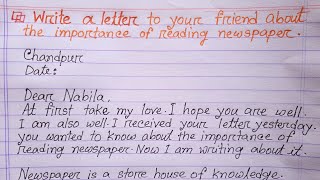 Write a letter to your friend about
the importance of reading newspaper.
Chandpur
Date:
Dear Nabila,
At first take my love. I hope you are well.
I am also well. I received your letter yesterday.
you wanted to know about the importance of
reading newspaper. Now I am writing about it.
Newspaper is a store house of knowledge.